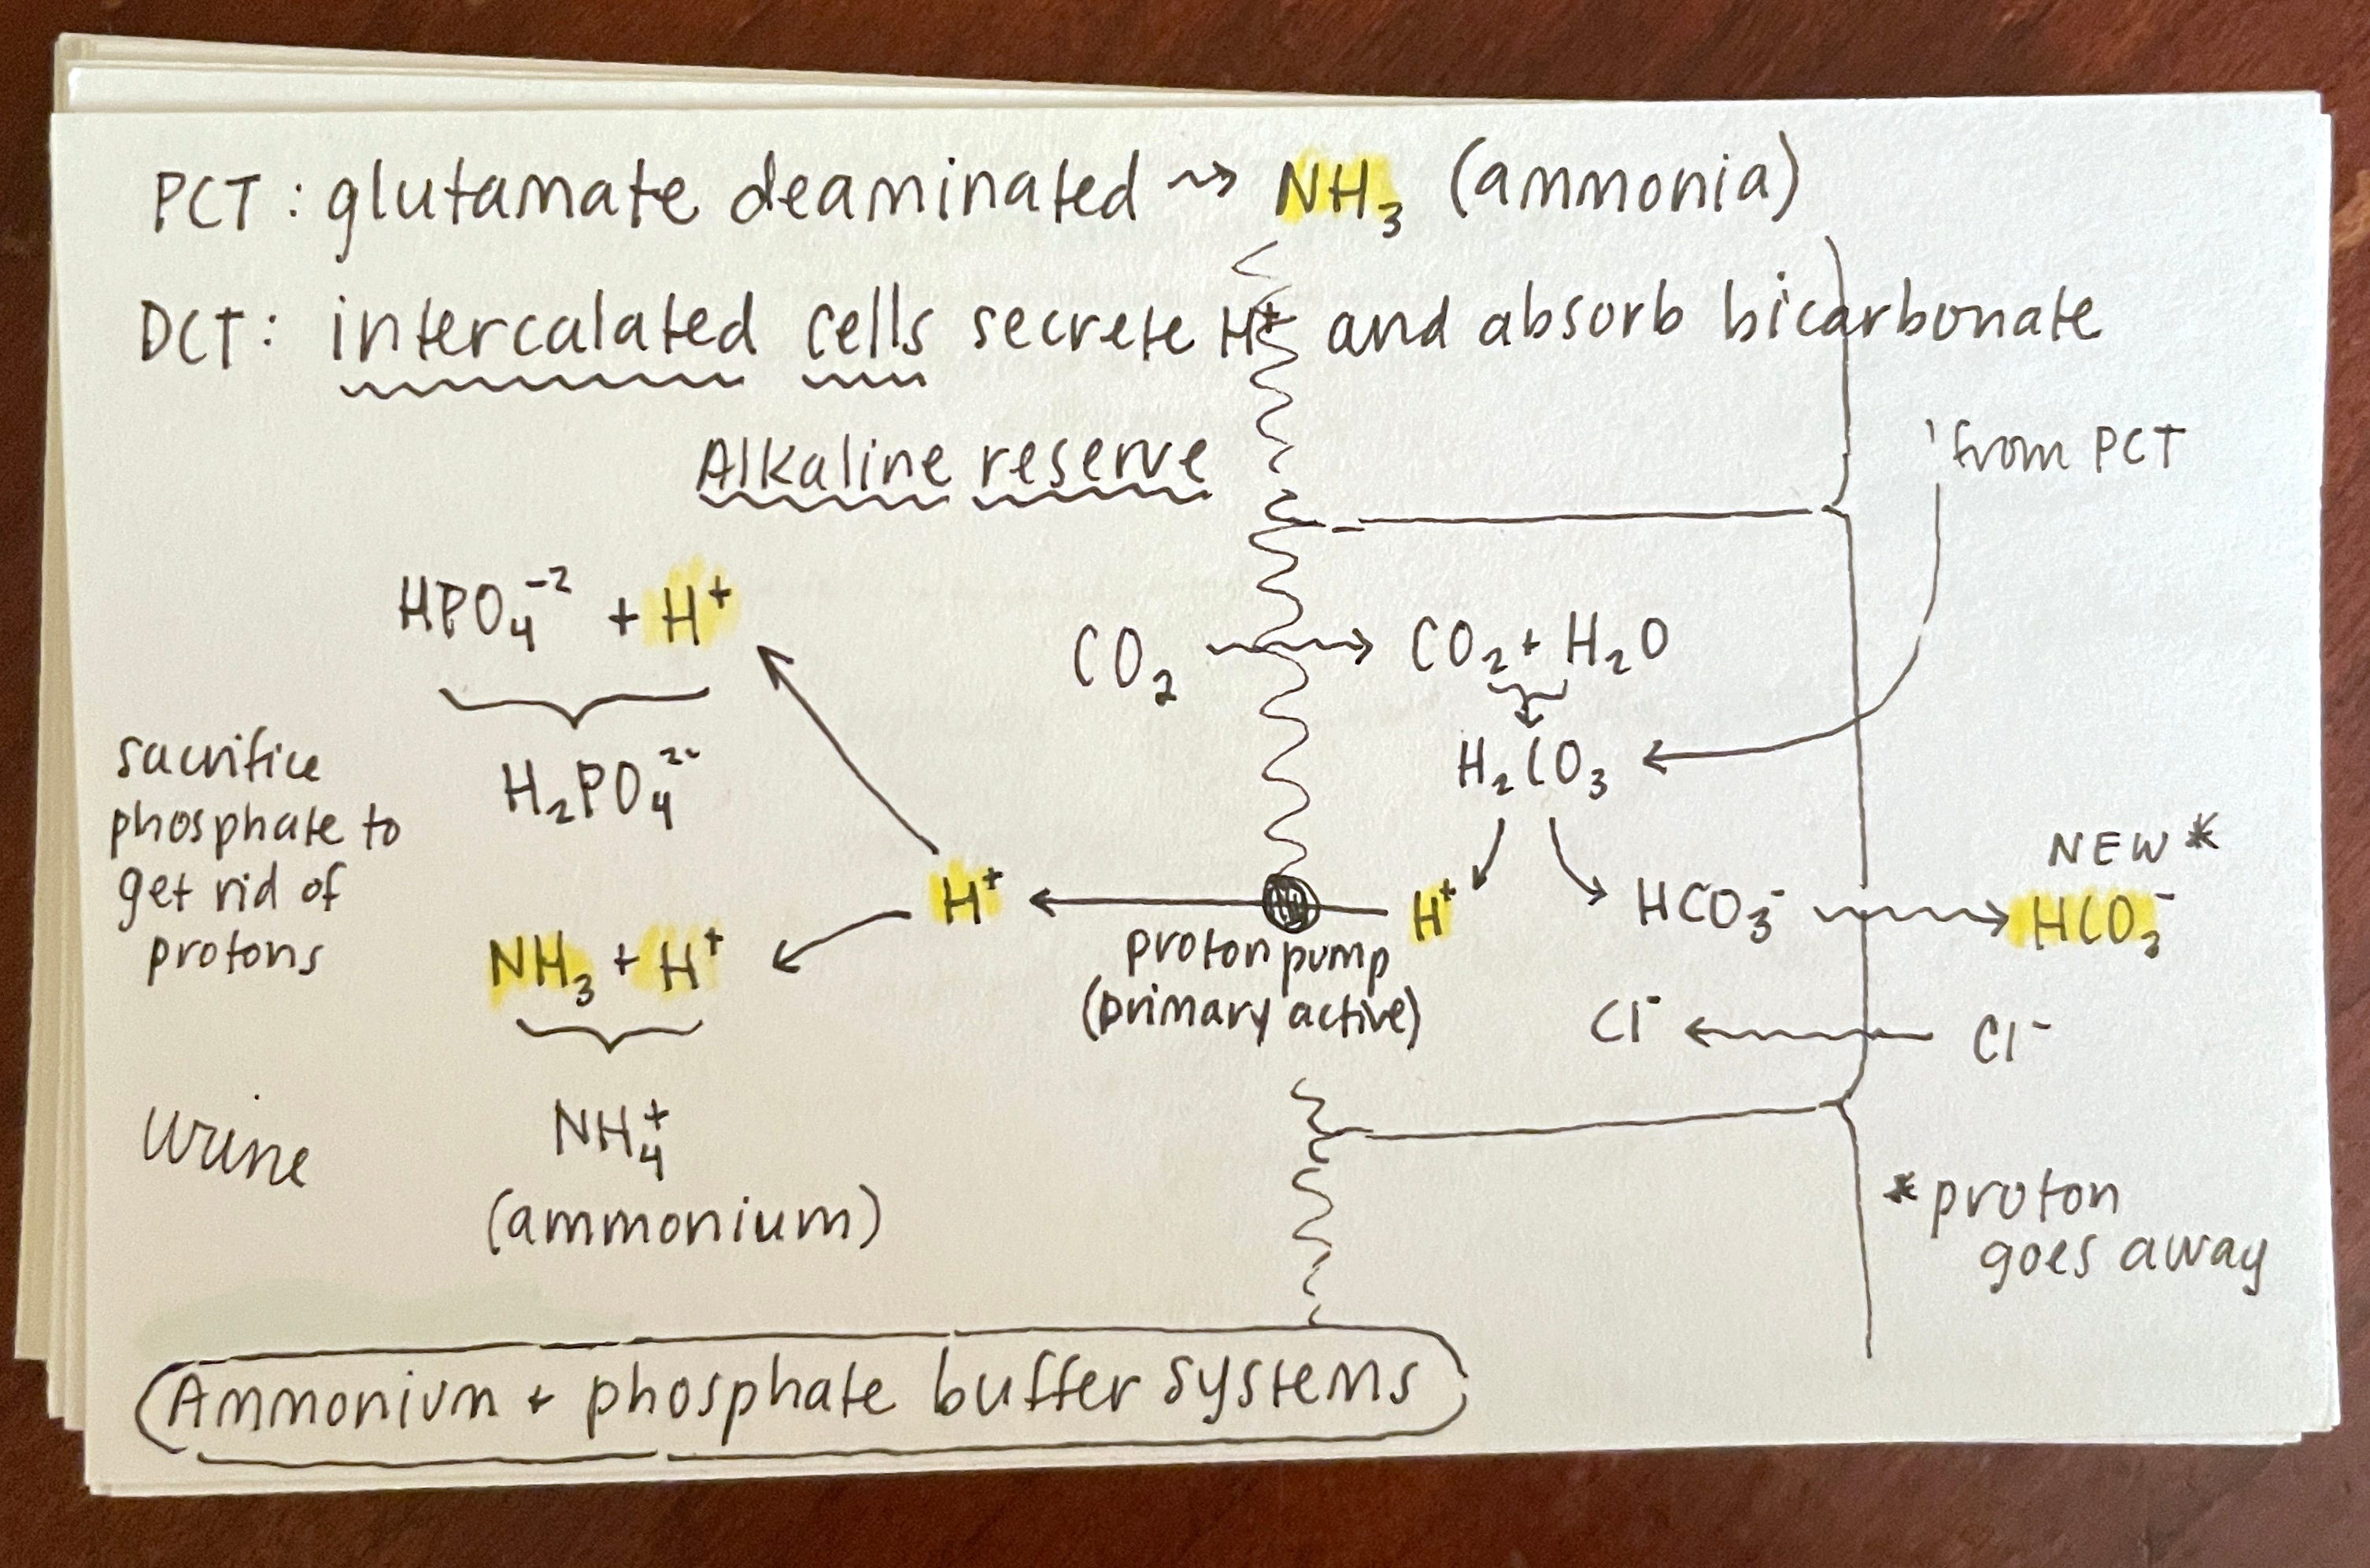 PCT: glutamate deaminated → NH₃ (ammonia)
DCT: intercalated cells secrete H⁺ and absorb bicarbonate
Alkaline reserve
from PCT
HPO₄⁻² + H⁺
CO₂ → CO₂ + H₂O
H₂PO₄²⁻
H₂CO₃
sacrifice
phosphate to
get rid of
protons
NEW *
H⁺ ← H⁺
HCO₃⁻ → HCO₃⁻
proton pump
(primary active)
NH₃ + H⁺
Cl⁻ ← Cl⁻
NH₄⁺
(ammonium)
urine
* proton
goes away
Ammonium + phosphate buffer systems